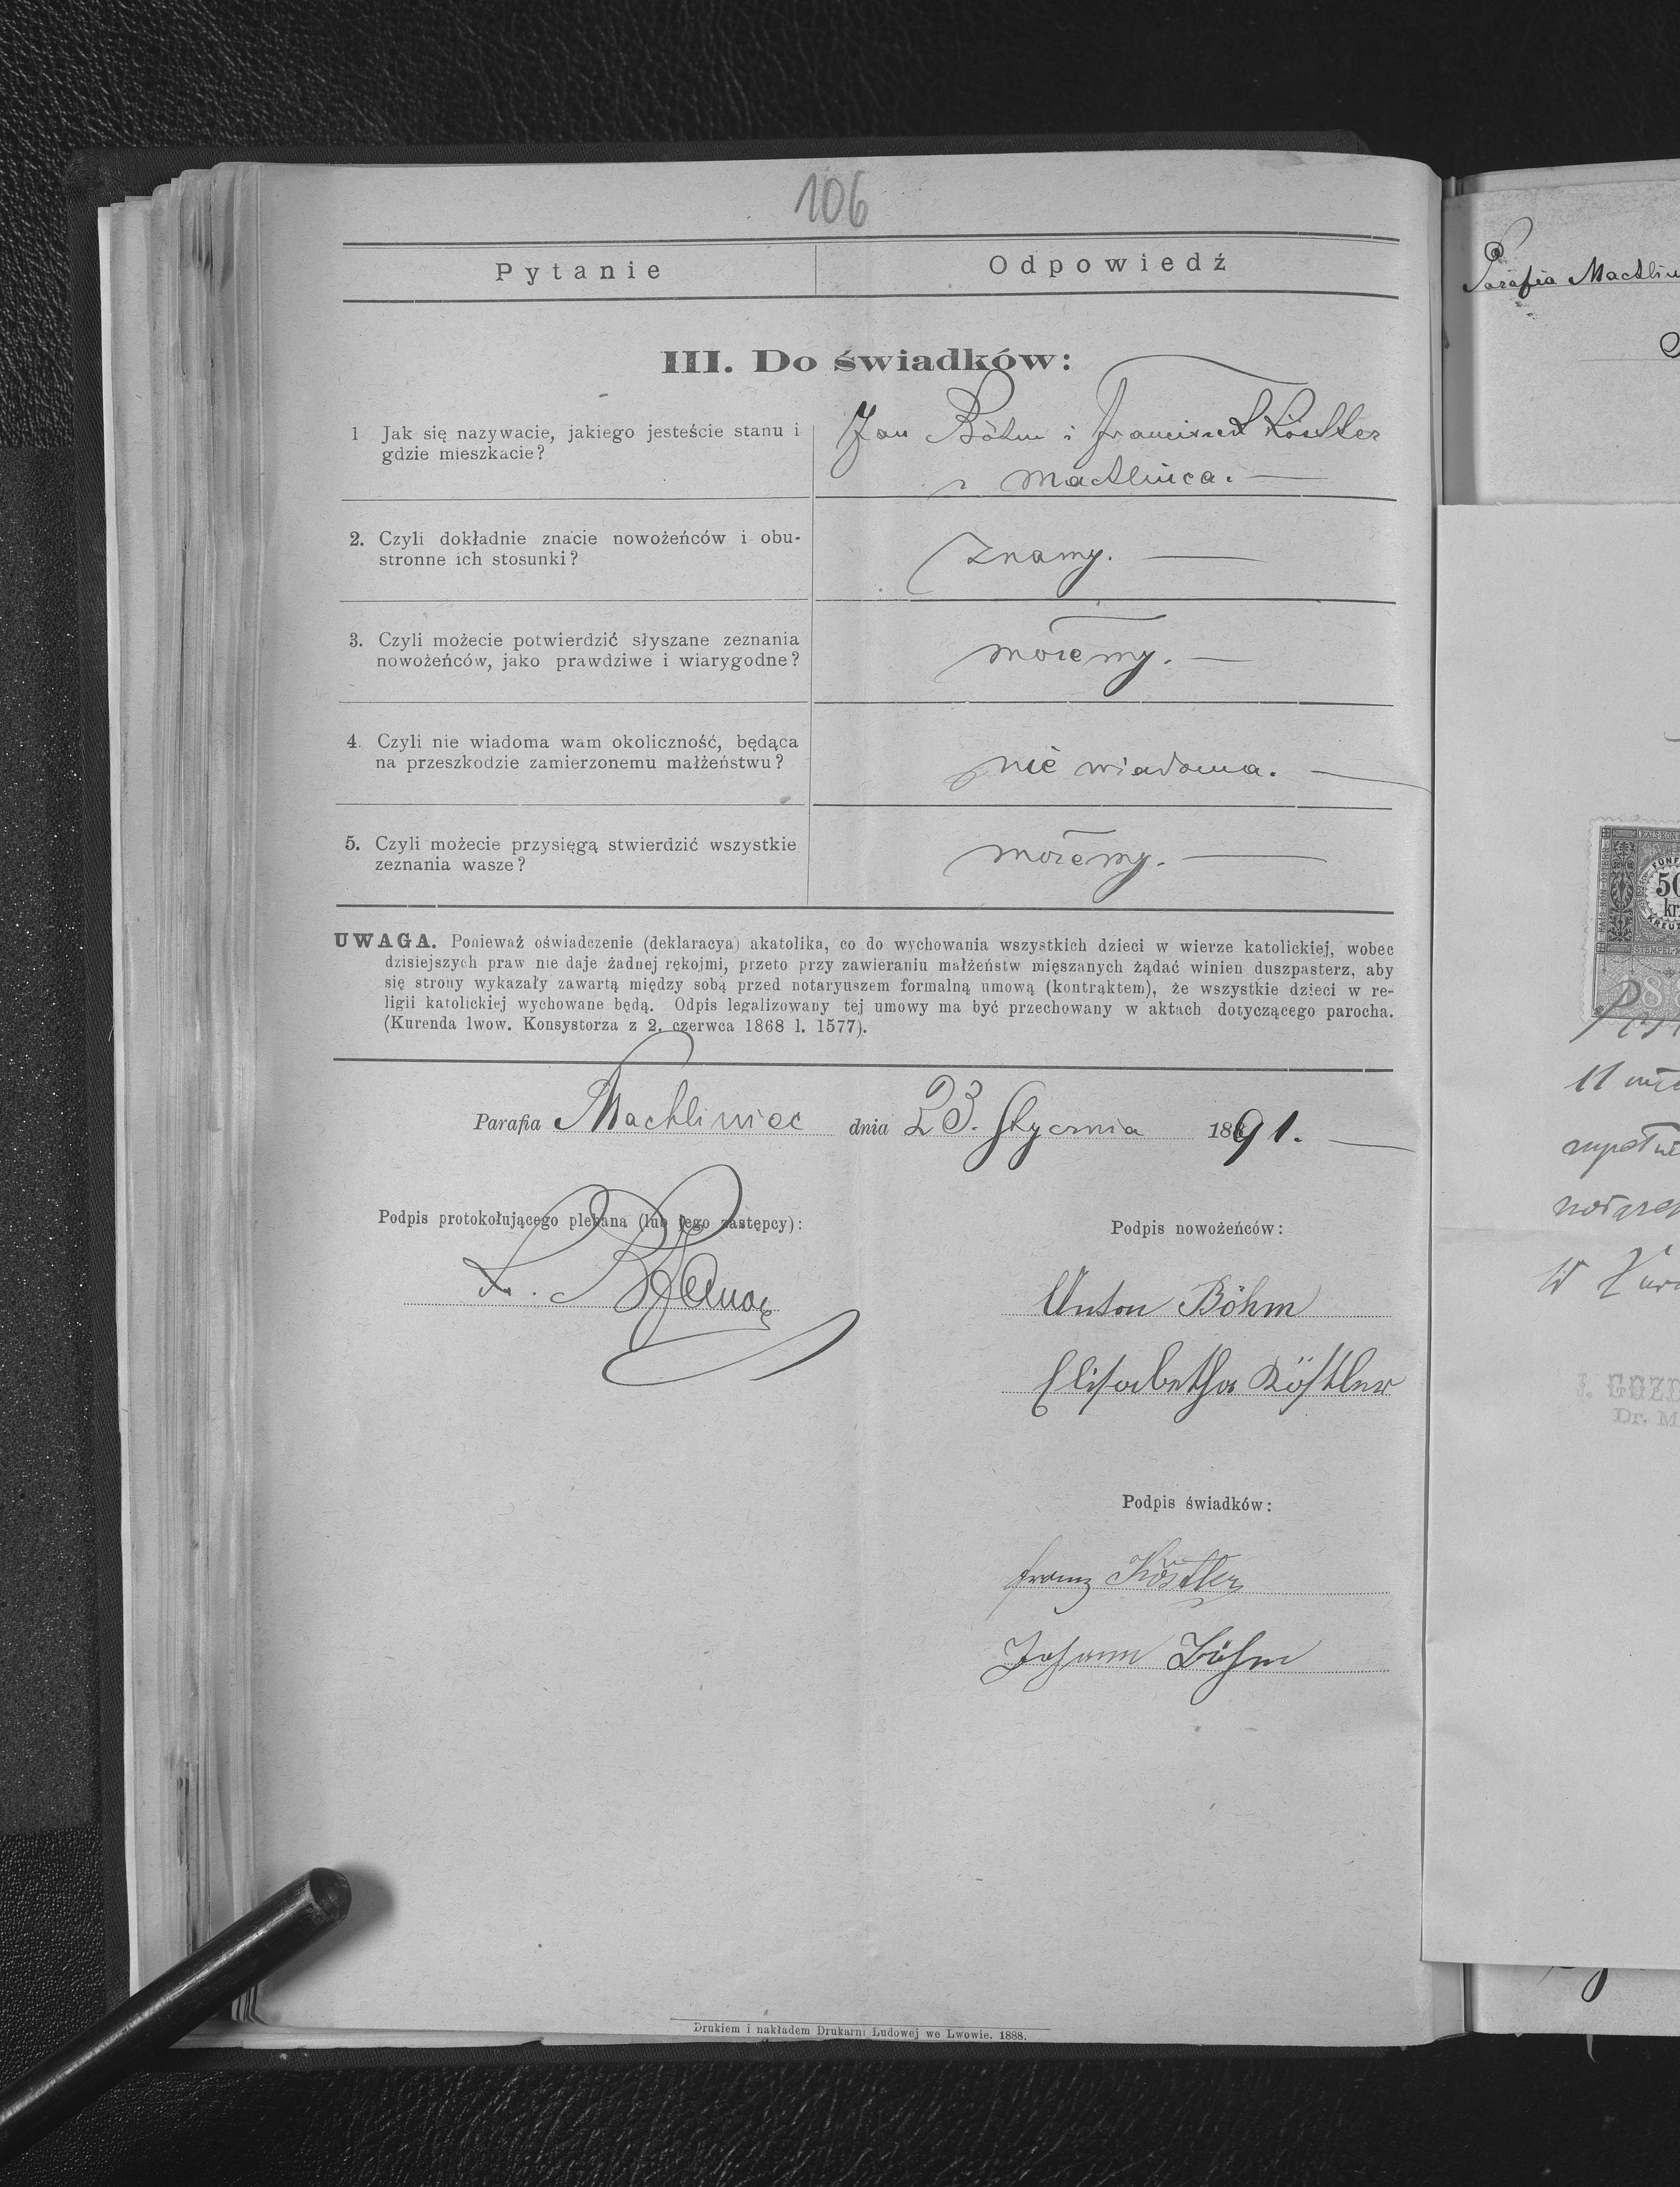 106
Pytanie
Odpowiedź
III. Do świadków:
1 Jak się nazywacie, jakiego jesteście stanu i
gdzie mieszkacie?
Jan Böhm i Franciszek Köstler
z Machlińca. —
2. Czyli dokładnie znacie nowożeńców i obu-
stronne ich stosunki?
znamy. —
3. Czyli możecie potwierdzić słyszane zeznania
nowożeńców, jako prawdziwe i wiarygodne?
możemy. —
4. Czyli nie wiadoma wam okoliczność, będąca
na przeszkodzie zamierzonemu małżeństwu?
nie wiadoma. —
5. Czyli możecie przysięgą stwierdzić wszystkie
zeznania wasze?
możemy. —
UWAGA. Ponieważ oświadczenie (deklaracya) akatolika, co do wychowania wszystkich dzieci w wierze katolickiej, wobec
dzisiejszych praw nie daje żadnej rękojmi, przeto przy zawieraniu małżeństw mięszanych żądać winien duszpasterz, aby
się strony wykazały zawartą między sobą przed notaryuszem formalną umową (kontraktem), że wszystkie dzieci w re-
ligii katolickiej wychowane będą. Odpis legalizowany tej umowy ma być przechowany w aktach dotyczącego parocha.
(Kurenda lwow. Konsystorza z 2. czerwca 1868 l. 1577).
Parafia Machliniec dnia 23. Stycznia 1891. —
Podpis protokołującego plebana (lub jego zastępcy):
Podpis nowożeńców:
Anton Böhm
Elisabetha Köstler
Podpis świadków:
Franz Köstler
Johann Böhm
Drukiem i nakładem Drukarni Ludowej we Lwowie. 1888.
Parafia Machlin
50
kr
11
W
Dr. M